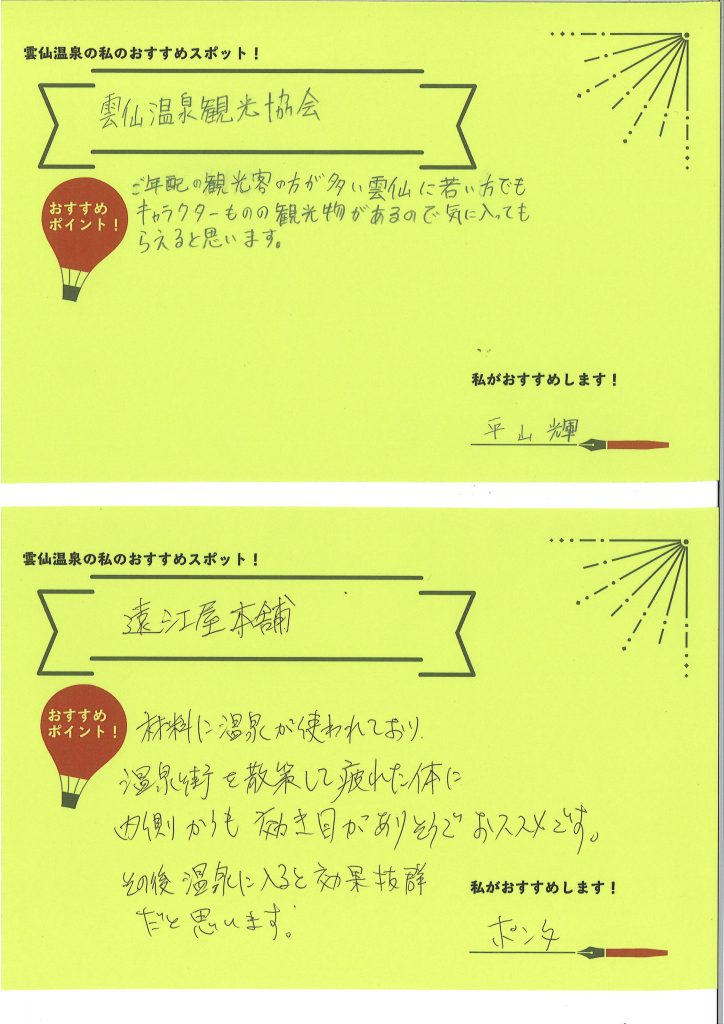 雲仙温泉の私のおすすめスポット！
雲仙温泉観光協会
おすすめ
ポイント！
ご年配の観光客の方が多い雲仙に若い方でも
キャラクターものの観光物があるので気に入っても
らえると思います。
私がおすすめします！
平山輝
雲仙温泉の私のおすすめスポット！
遠江屋本舗
おすすめ
ポイント！
材料に温泉が使われており、
温泉街を散策して疲れた体に
内側からも効き目がありそうでおススメです。
その後温泉に入ると効果抜群
だと思います。
私がおすすめします！
ポンタ